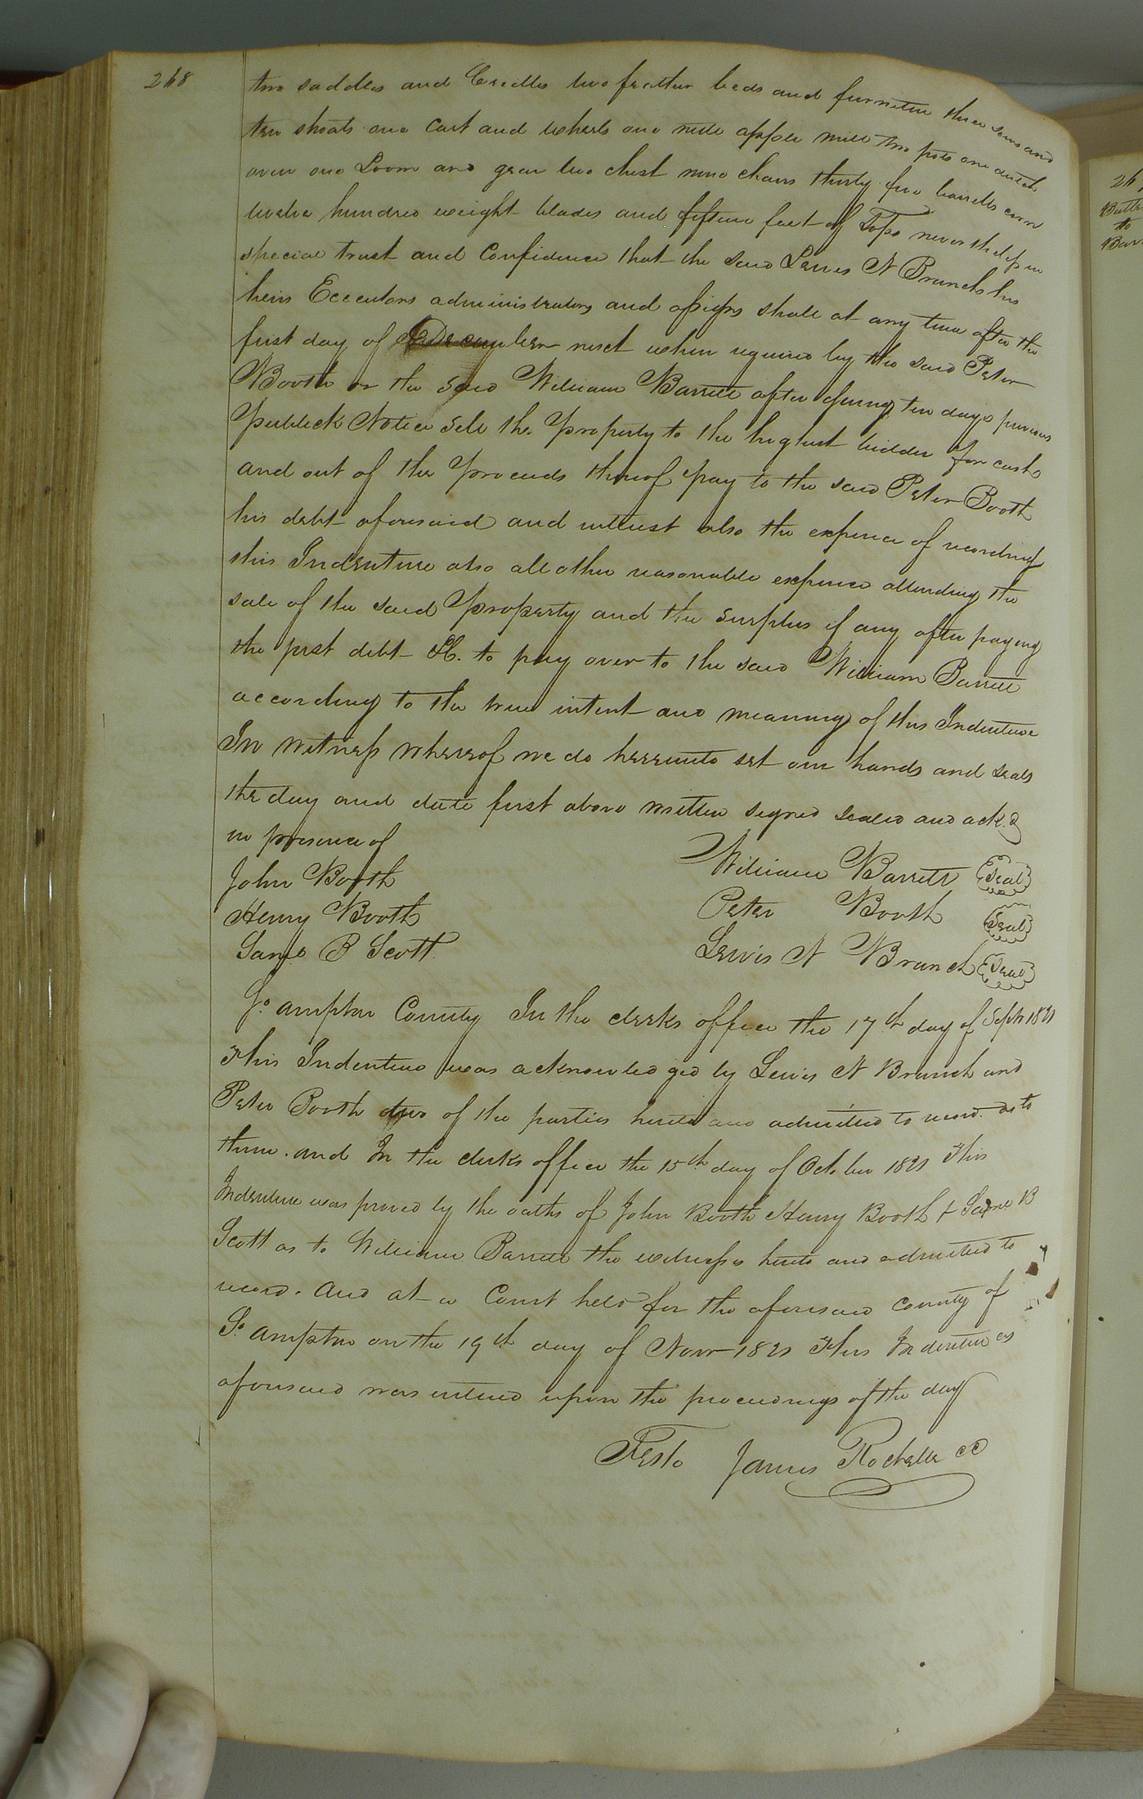 268
two saddles and Cradles two feather beds and furniture three sows and
ten shoats one Cart and wheels one nute apple mill two pots one dutch
oven one Loom and gear two chest nine chairs thirty five barrells corn
twelve hundred weight blades and fifteen feet of Tops nevertheless in
special trust and Confidence that the said Lewis N Branch his
heirs Executors administrators and assigns shall at any time after the
first day of December next when required by the said Peter
Booth or the said William Barrett after giving ten days previous
Publick Notice Sell the Property to the highest bidder for cash
and out of the Proceeds thereof pay to the said Peter Booth
his debt aforesaid and interest also the expence of recording
this Indenture also all other reasonable expence attending the
sale of the said Property and the surplus if any after paying
the just debt &C. to pay over to the said William Barrett
according to the true intent and meaning of this Indenture
In witness whereof we do hereunto set our hands and seals
the day and date first above written signed sealed and ackd
in presence of
John Booth
Henry Booth
James B Scott
William Barrett Seal
Peter Booth Seal
Lewis N Branch Seal
So.ampton County In the clerks office the 17th day of Septr 1821
This Indenture was acknowledged by Lewis N Branch and
Peter Booth two of the parties hereto and admitted to record as to
them. and In the clerks office the 15th day of October 1821 This
Indenture was proved by the oaths of John Booth Henry Booth & James B
Scott as to William Barrett the witnesses hereto and admitted to
record. And at a Court held for the aforesaid County of
So.ampton on the 19th day of Novr 1821 This Indenture as
aforesaid was entered upon the proceedings of the day
Teste James Rochelle CC
26
Butts
to
Barr